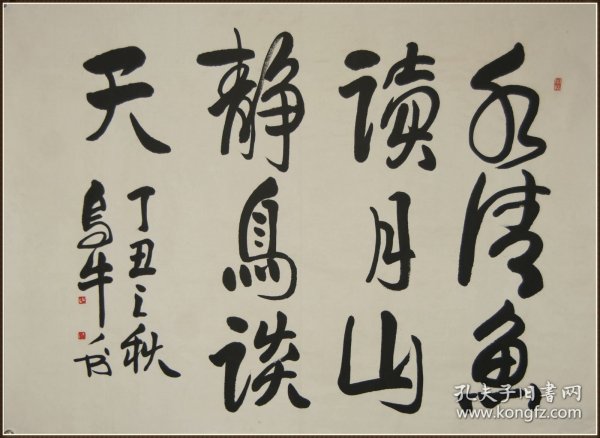 水清魚
讀月山
靜鳥談
天
丁丑之秋
烏牛书
孔夫子旧書网
www.kongfz.com